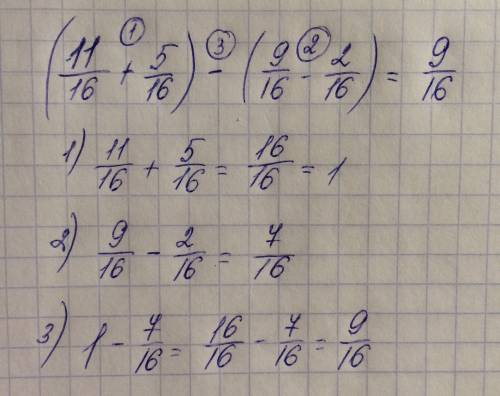 (11/16 +① 5/16) -③ (9/16 -② 2/16) = 9/16
1) 11/16 + 5/16 = 16/16 = 1
2) 9/16 - 2/16 = 7/16
3) 1 - 7/16 = 16/16 - 7/16 = 9/16